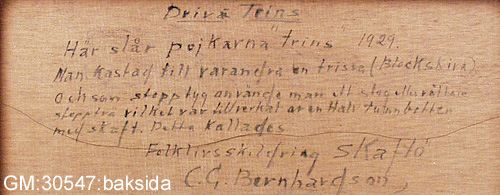 Driva Trins
Här slår pojkarna "trins" 1929.
Man kastad till varandra en trissa (Blockskiva)
och som stopptyg använde man ett slag
stoppträ vilket var tillverkat av en Halv tunnbotten
med skaft. Detta Kallades
Folklivsskildring Skaftö
C.G. Bernhardson
GM:30547:baksida